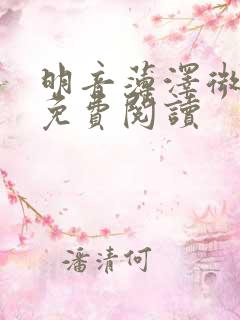 明音薄澤微
免費閱讀
潘清何